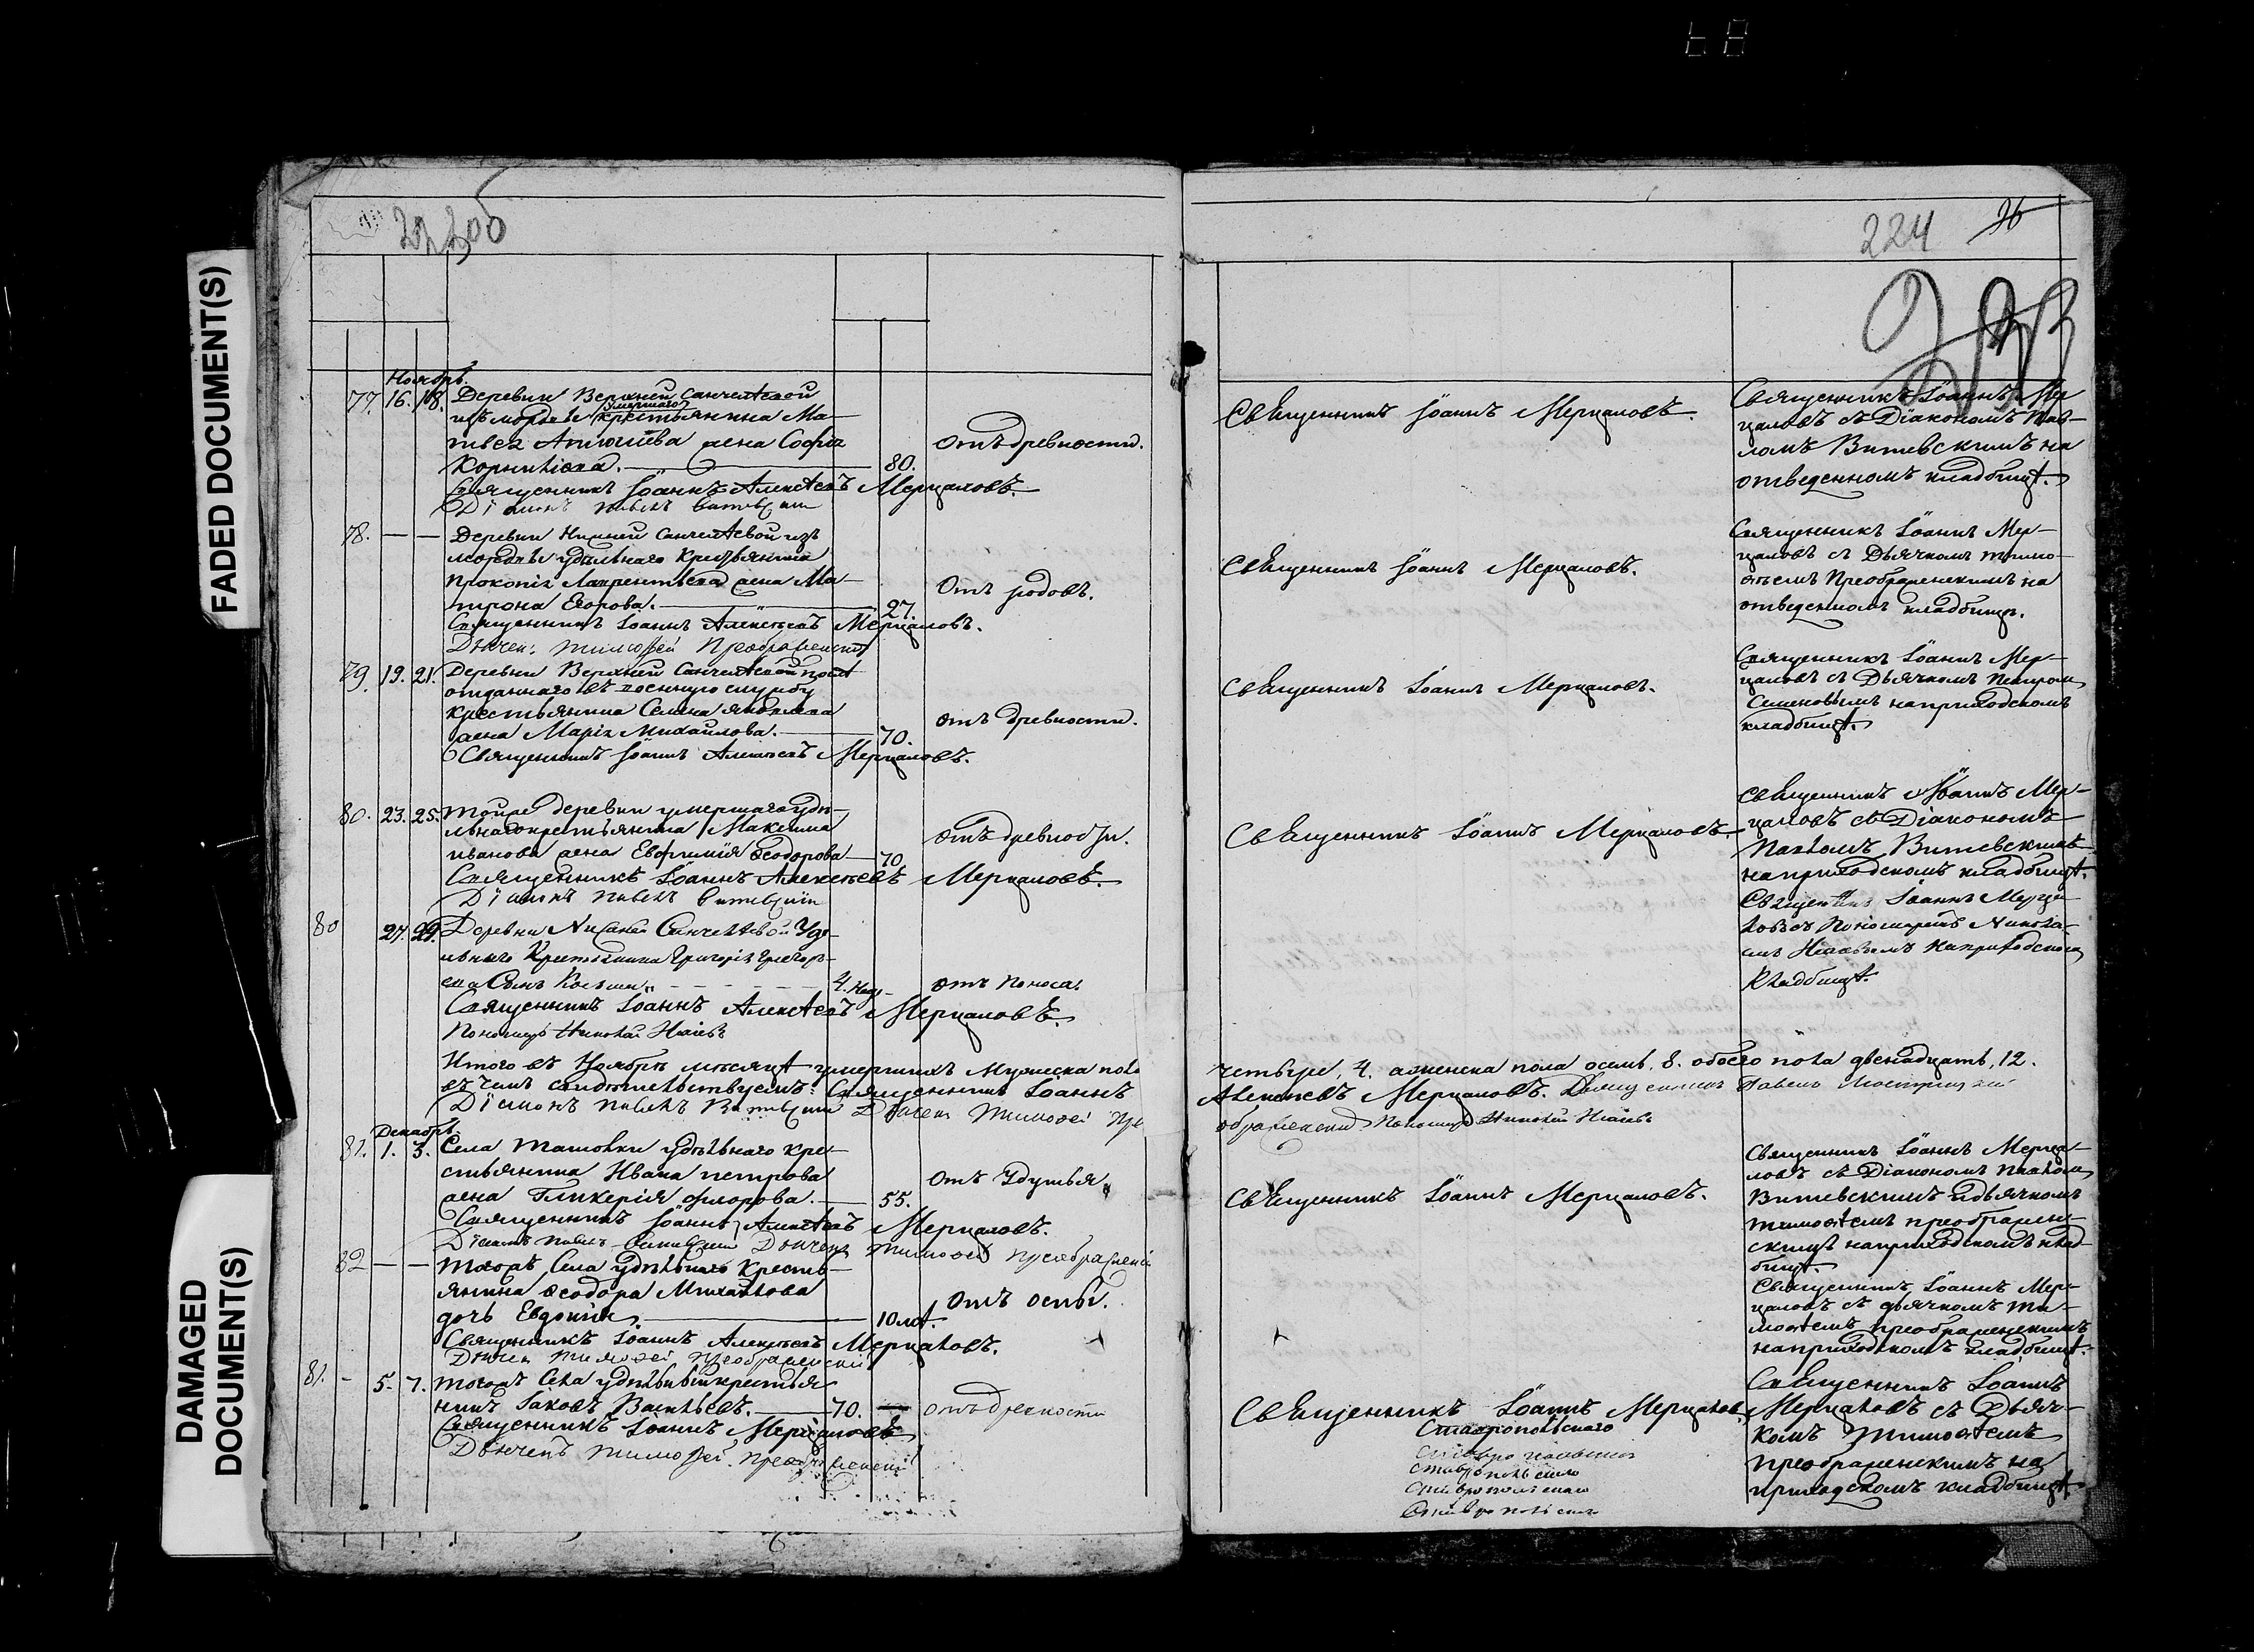 FADED DOCUMENT(S)
DAMAGED
DOCUMENT(S)
224
Ноябрь.
77. 16. 18. Деревни Верхней Санчелѣевой
изъ мордвы умершаго крестьянина Ма-
твея жена Софія
Корнилова. 80. отъ древности.
Священникъ Іоаннъ Алексѣевъ Мерцаловъ.
Діаконъ Павелъ Витевскій
Священникъ Іоаннъ Мерцаловъ.
Священникъ Іоаннъ Мер-
цаловъ съ Діакономъ Пав-
ломъ Витевскимъ на
отведенномъ кладбищѣ.
78. — — Деревни Нижней Санчелѣевой изъ
мордвы удѣльнаго крестьянина
Прокопія Лаврентьева жена Ма-
трона Егорова. 27. Отъ родовъ.
Священникъ Іоаннъ Алексѣевъ Мерцаловъ.
Дьячекъ Тимоѳей Преображенскій
Священникъ Іоаннъ Мерцаловъ.
Священникъ Іоаннъ Мер-
цаловъ съ Дьячкомъ Тимо-
ѳеемъ Преображенскимъ на
отведенномъ кладбищѣ.
79. 19. 21. Деревни Верхней Санчелѣевой
отданнаго въ военную службу
крестьянина Семена Яковлева
жена Марія Михайлова. 70. отъ древности.
Священникъ Іоаннъ Алексѣевъ Мерцаловъ.
Священникъ Іоаннъ Мерцаловъ.
Священникъ Іоаннъ Мер-
цаловъ съ Дьячкомъ Петромъ
Семеновымъ на приходскомъ
кладбищѣ.
80. 23. 25. Тойже деревни умершаго удѣ-
льнаго крестьянина Максима
Иванова жена Евфимія Ѳеодорова 70. отъ древности.
Священникъ Іоаннъ Алексѣевъ Мерцаловъ.
Діаконъ Павелъ Витевскій
Священникъ Іоаннъ Мерцаловъ
Священникъ Іоаннъ Мер-
цаловъ съ Діакономъ
Павломъ Витевскимъ
на приходскомъ кладбищѣ.
80 27. 29. Деревни Нижней Санчелѣевой Удѣ-
льнаго Крестьянина Григорія Григорь-
ева Сынъ Козьма. 4. Нед. отъ поноса.
Священникъ Іоаннъ Алексѣевъ Мерцаловъ.
Пономарь Николай
Священникъ Іоаннъ Мерца-
ловъ съ Пономаремъ Никола-
емъ на приходскомъ
кладбищѣ.
Итого въ Ноябрѣ мѣсяцѣ умершихъ Мужеска пола
четыре, 4. а женска пола осемь, 8. обоего пола двенадцать, 12.
въ чемъ свидѣтельствуемъ: Священникъ Іоаннъ
Алексѣевъ Мерцаловъ. Священникъ Павелъ
Діаконъ Павелъ Витевскій Дьячекъ Тимоѳей Пре
ображенскій Пономарь Николай
Декабрь.
81. 1. 3. Села Ташовки удѣльнаго кре-
стьянина Ивана Петрова
жена Гликерія Флорова. 55. Отъ Удушья
Священникъ Іоаннъ Алексѣевъ Мерцаловъ.
Діаконъ Павелъ Витевскій Дьячекъ Тимоѳей Преображенскій
Священникъ Іоаннъ Мерцаловъ.
Священникъ Іоаннъ Мерца-
ловъ съ Діакономъ Павломъ
Витевскимъ и дьячкомъ
Тимоѳѣемъ Преображен-
скимъ на приходскомъ клад-
бищѣ.
82 — — Тогожъ Села удѣльнаго Кресть-
янина Ѳеодора Михайлова
дочь Евдокія. 10 лѣт. Отъ оспы.
Священникъ Іоаннъ Алексѣевъ Мерцаловъ.
Дьячекъ Тимоѳей Преображенскій
Священникъ Іоаннъ Мер-
цаловъ съ дьячкомъ Ти-
моѳѣемъ Преображенскимъ
на приходскомъ кладбищѣ.
81. - 5. 7. Тогожъ Села удѣльный крестья-
нинъ Іаковъ Васильевъ. 70. отъ дрехности
Священникъ Іоаннъ Мерцаловъ
Дьячекъ Тимоѳей Преображенскій
Священникъ Іоаннъ Мерцаловъ
Ставропольскаго
Священникъ Іоаннъ
Мерцаловъ съ Дьяч-
комъ Тимоѳѣемъ
Преображенскимъ на
приходскомъ кладбищѣ.